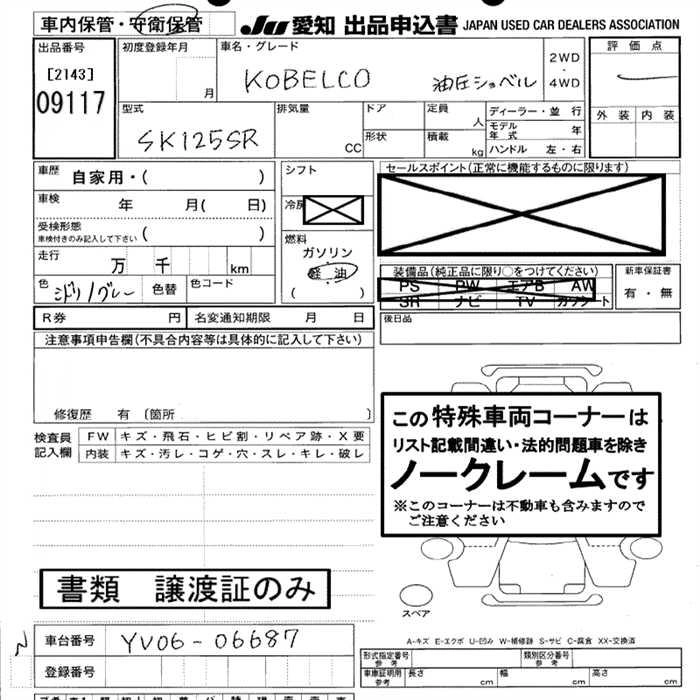 車内保管・守衛保管 JU 愛知 出品申込書 JAPAN USED CAR DEALERS ASSOCIATION
出品番号 初度登録年月 車名・グレード 評価点
[2143] 09117 月 KOBELCO 油圧ショベル 2WD・4WD
型式 排気量 ドア 定員 ディーラー・並行 外装 内装
SK125SR CC 形状 人 積載 kg モデル年式 年
ハンドル 左・右
車歴 自家用・( ) シフト セールスポイント(正常に機能するものに限ります)
車検 年 月( 日) 冷房
受検形態 車検付きのみ記入して下さい ( ) 燃料
走行 万 千 km ガソリン
軽油
( )
装備品(純正品に限り○をつけてください) 新車保証書
PS PW エアB AW 有・無
SR ナビ TV カセット
色 ミドリ/グレー 色替 色コード
R券 円 名変通知期限 月 日 後日品
注意事項申告欄(不具合内容等は具体的に記入して下さい)
修復歴 有 〔箇所 〕
検査員記入欄 FW キズ・飛石・ヒビ割・リペア跡・X要
内装 キズ・汚レ・コゲ・穴・スレ・キレ・破レ
この特殊車両コーナーは
リスト記載間違い・法的問題車を除き
ノークレームです
※このコーナーは不動車も含みますので
ご注意ください
書類 譲渡証のみ
スペア
A-キズ E-エクボ U-凹み W-補修跡 S-サビ C-腐食 XX-交換済
車台番号 YV06-06687
登録番号
形式指定番号 参考 類別区分番号 参考
車庫証明用 参考 長さ cm 幅 cm 高さ cm